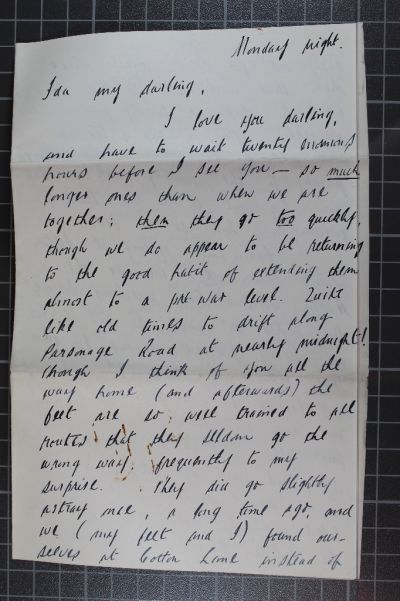 Monday night.
Ida my darling,
I love you darling,
and have to wait twenty enormous
hours before I see you — so much
longer ones than when we are
together; then they go too quickly,
though we do appear to be returning
to the good habit of extending them
almost to a pre war level. Quite
like old times to drift along
Parsonage Road at nearly midnight!
Though I think of you all the
way home (and afterwards) the
feet are so well trained to all
routes that they seldom go the
wrong way, frequently to my
surprise. They did go slightly
astray once, a long time ago, and
we (my feet and I) found our-
selves at Cotton Lane instead of